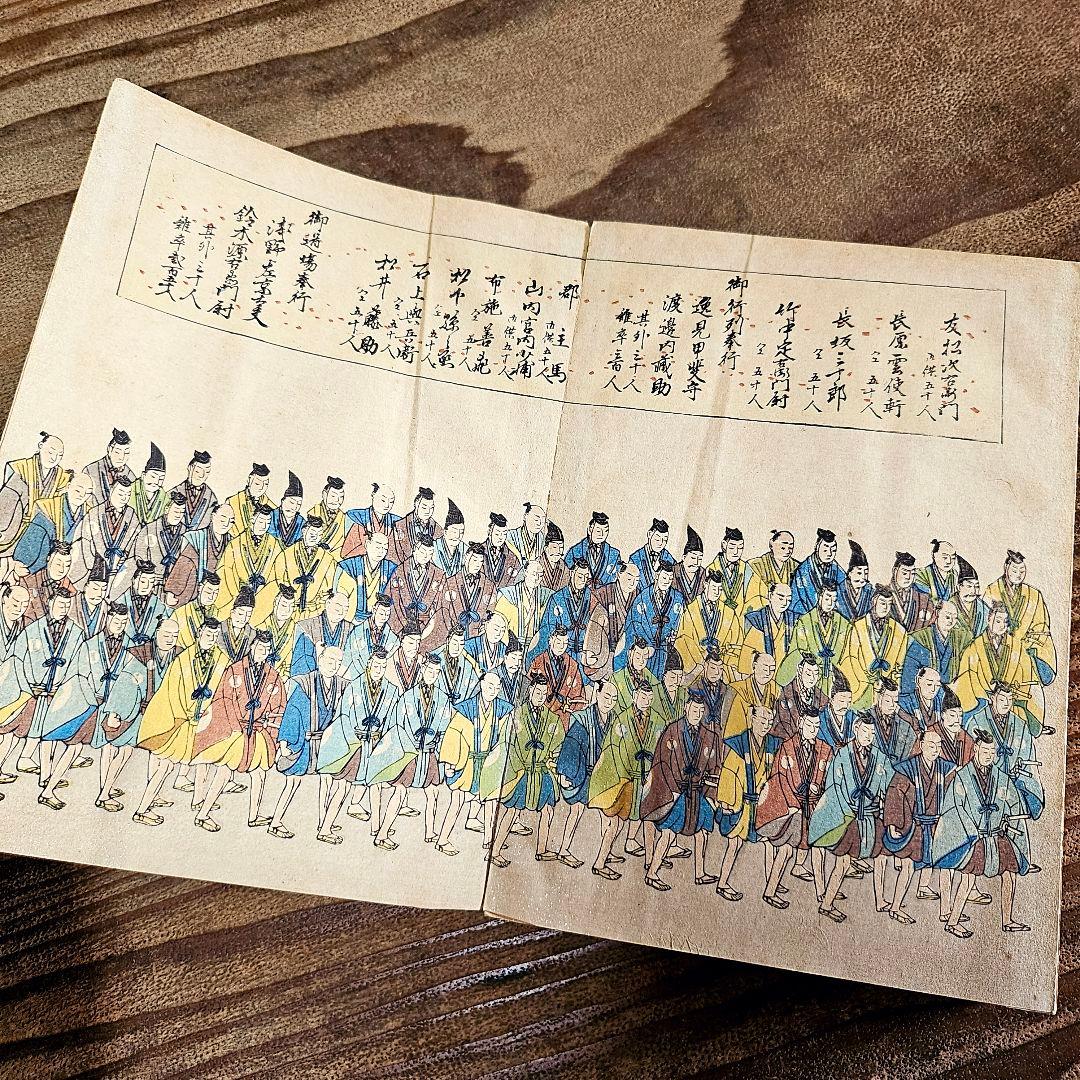 友松次右衛門
内供五十人
長原雲使軒
仝五十人
長坂三十郎
仝五十人
竹中定右衛門尉
仝五十人
御行列奉行
逸見甲斐守
渡邊内蔵助
其外三十人
雑卒三百人
郡主馬
内供五十人
山内宮内少輔
内供五十人
布施
仝五十人
松下
仝五十人
石上與兵衛
仝五十人
松井藤助
仝五十人
御道場奉行
浅野左京大夫
鈴木源右衛門尉
其外三十人
雑卒弐百五十人